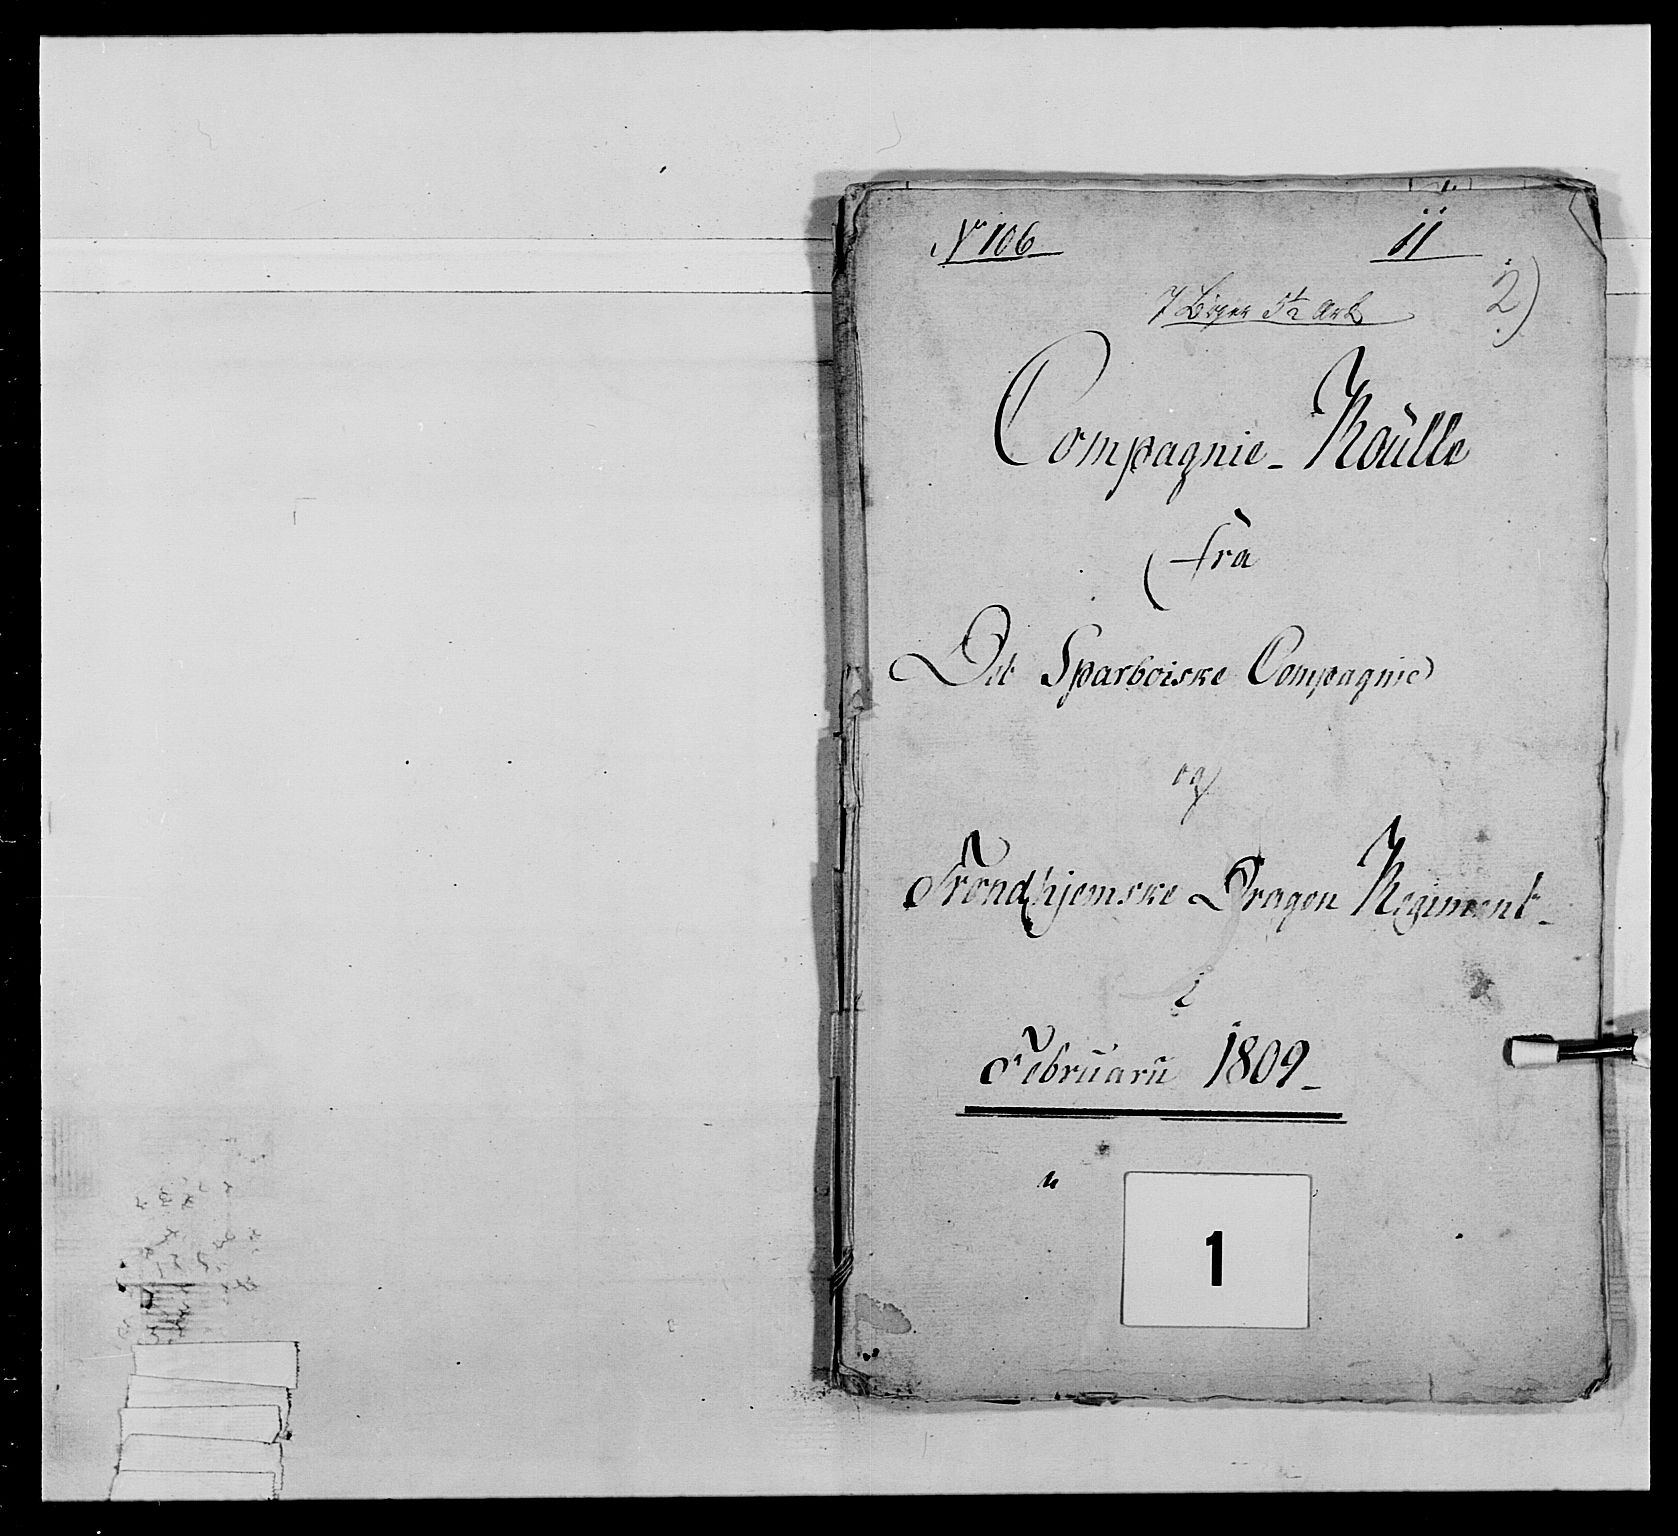 No 106
11
2)
7 Bøger 5½ Ark
Compagnie-Roulle
fra
Det Sparboiske Compagnie
og
Trondhjemske Dragon Regiment
i
Februarii 1809
1